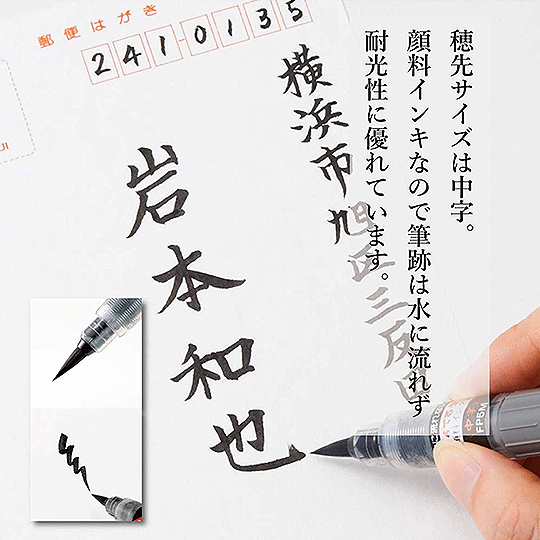 穂先サイズは中字。
顔料インキなので筆跡は水に流れず
耐光性に優れています。
郵便はがき
2410135
横浜市旭区三反田
岩本和也
中字
FP5M